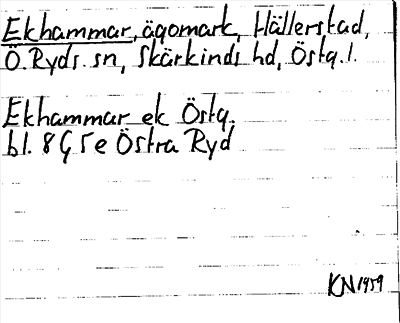 Ekhammar, ägomark, Hällerstad,
Ö. Ryds sn, Skärkinds hd, Östg. l.
Ekhammar ek Östg.
bl. 8 G 5 e Östra Ryd
KN 1959